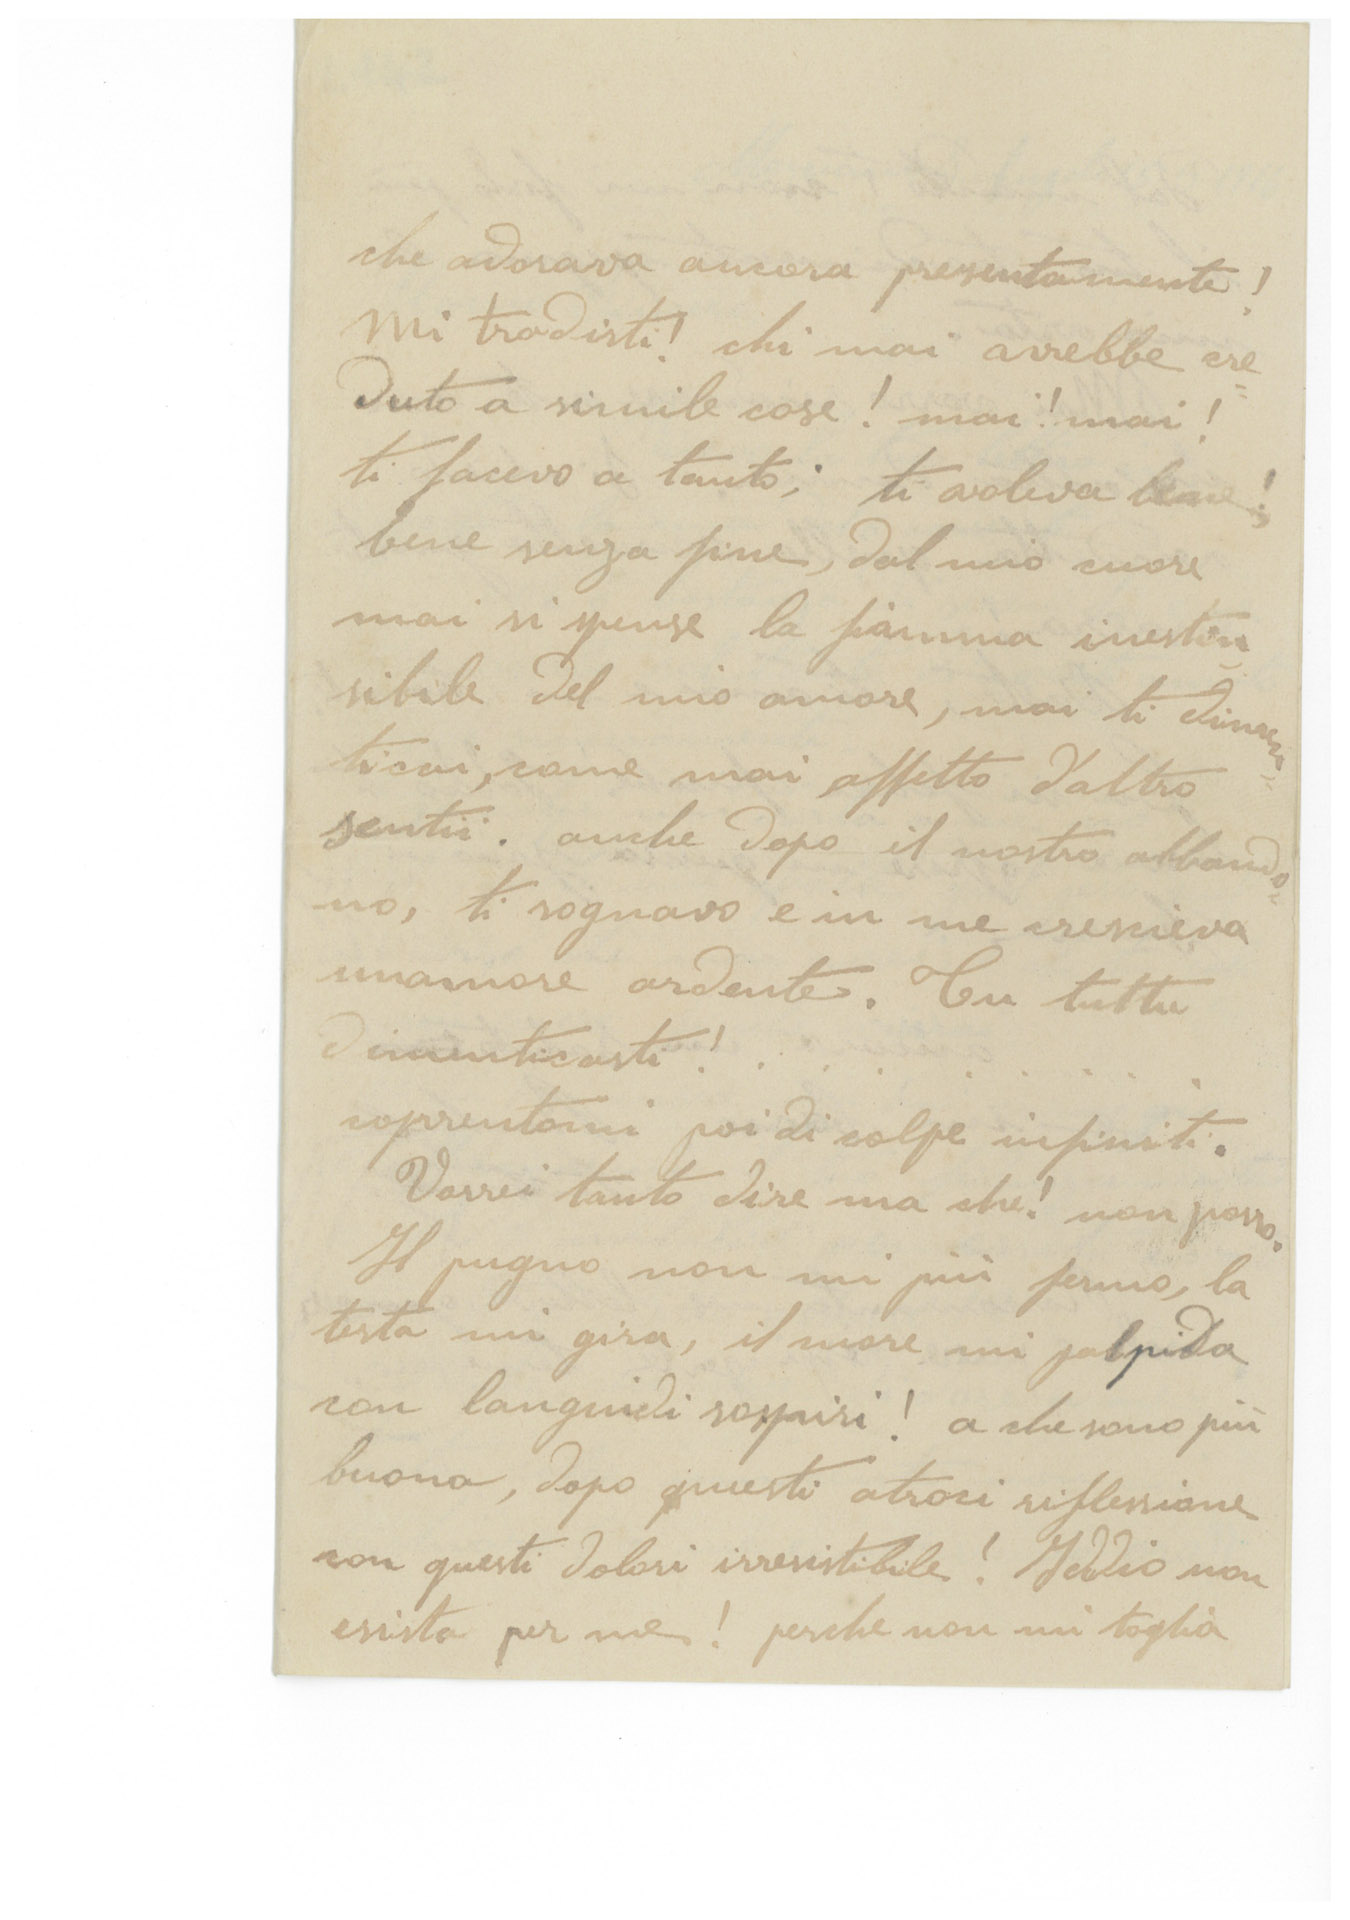 che adorava ancora presentamente!
Mi tradisti! chi mai avrebbe cre=
duto a simile cose! mai! mai!
ti facevo a tanto; ti voleva bene!
bene senza fine, dal mio cuore
mai si spense la fiamma inestin=
sibile del mio amore, mai ti dimen=
ticai, come mai affetto d'altro
sentii. anche dopo il nostro abbando=
no, ti sognavo e in me crescieva
unamore ardente. Tu tutto
dimenticasti! . . . . . . . . .
coprentomi poi di colpe infiniti.
Vorrei tanto dire ma che! non posso.
Il pugno non mi più fermo, la
testa mi gira, il cuore mi palpida
con languidi sospiri! a che sono più
buona, dopo questi atroci riflessione
con questi dolori irresistibile! Iddio non
esista per me! perche non mi toglia